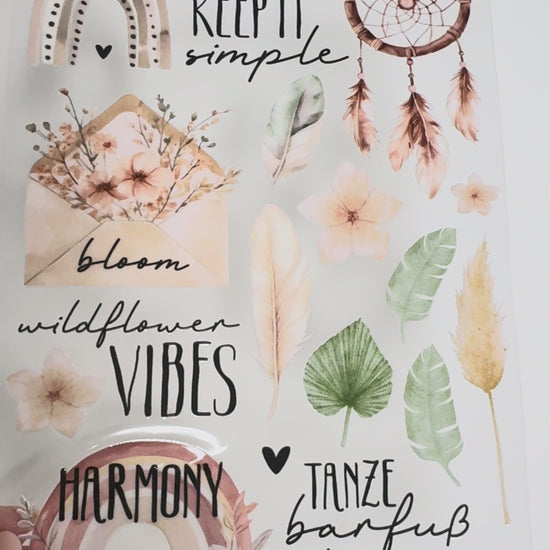 KEEP IT
simple
bloom
wildflower
VIBES
HARMONY
TANZE
barfuß